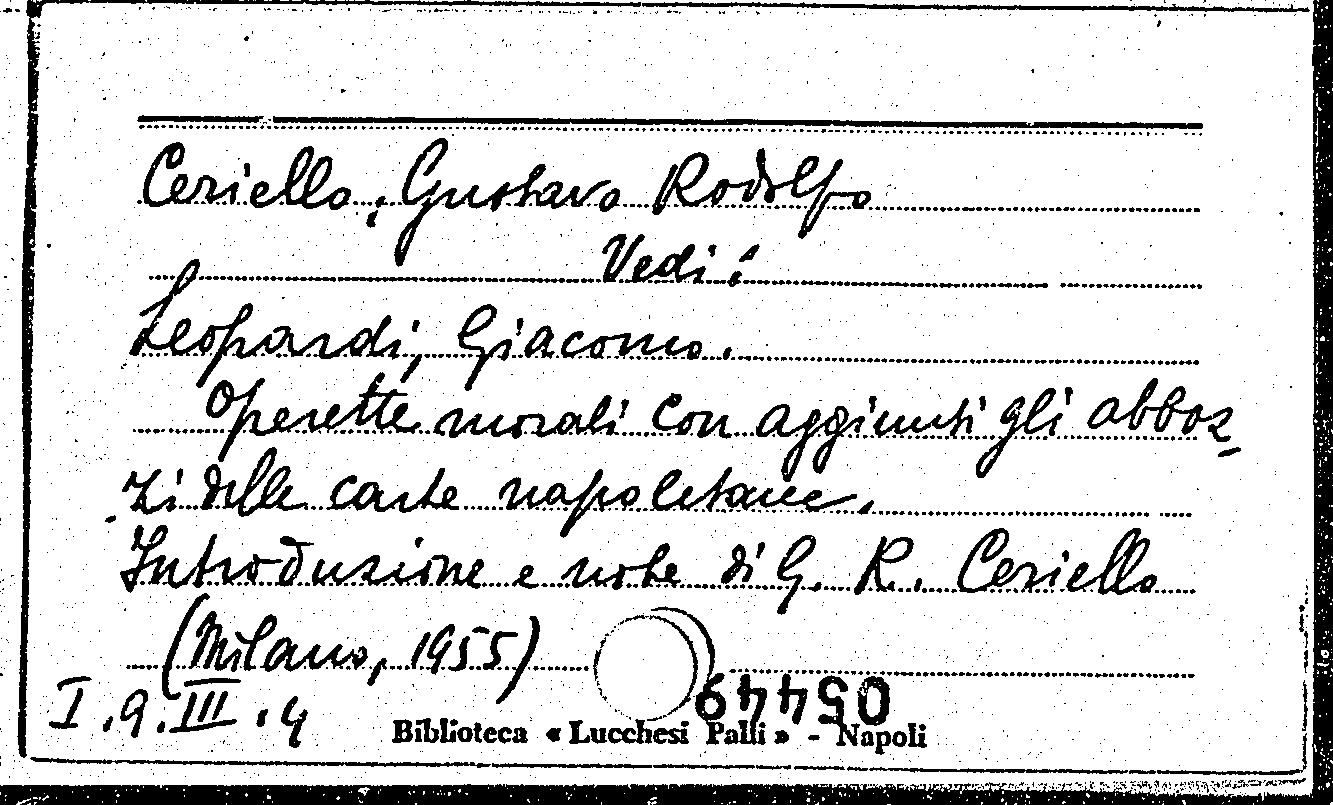 Ceriello, Gustavo Rodolfo
Vedi:
Leopardi, Giacomo.
Operette morali con aggiunti gli abboz-
zi delle carte napoletane.
Introduzione e note di G. R. Ceriello
(Milano, 1955)
05449
I.9.III.4
Biblioteca « Lucchesi Palli » - Napoli